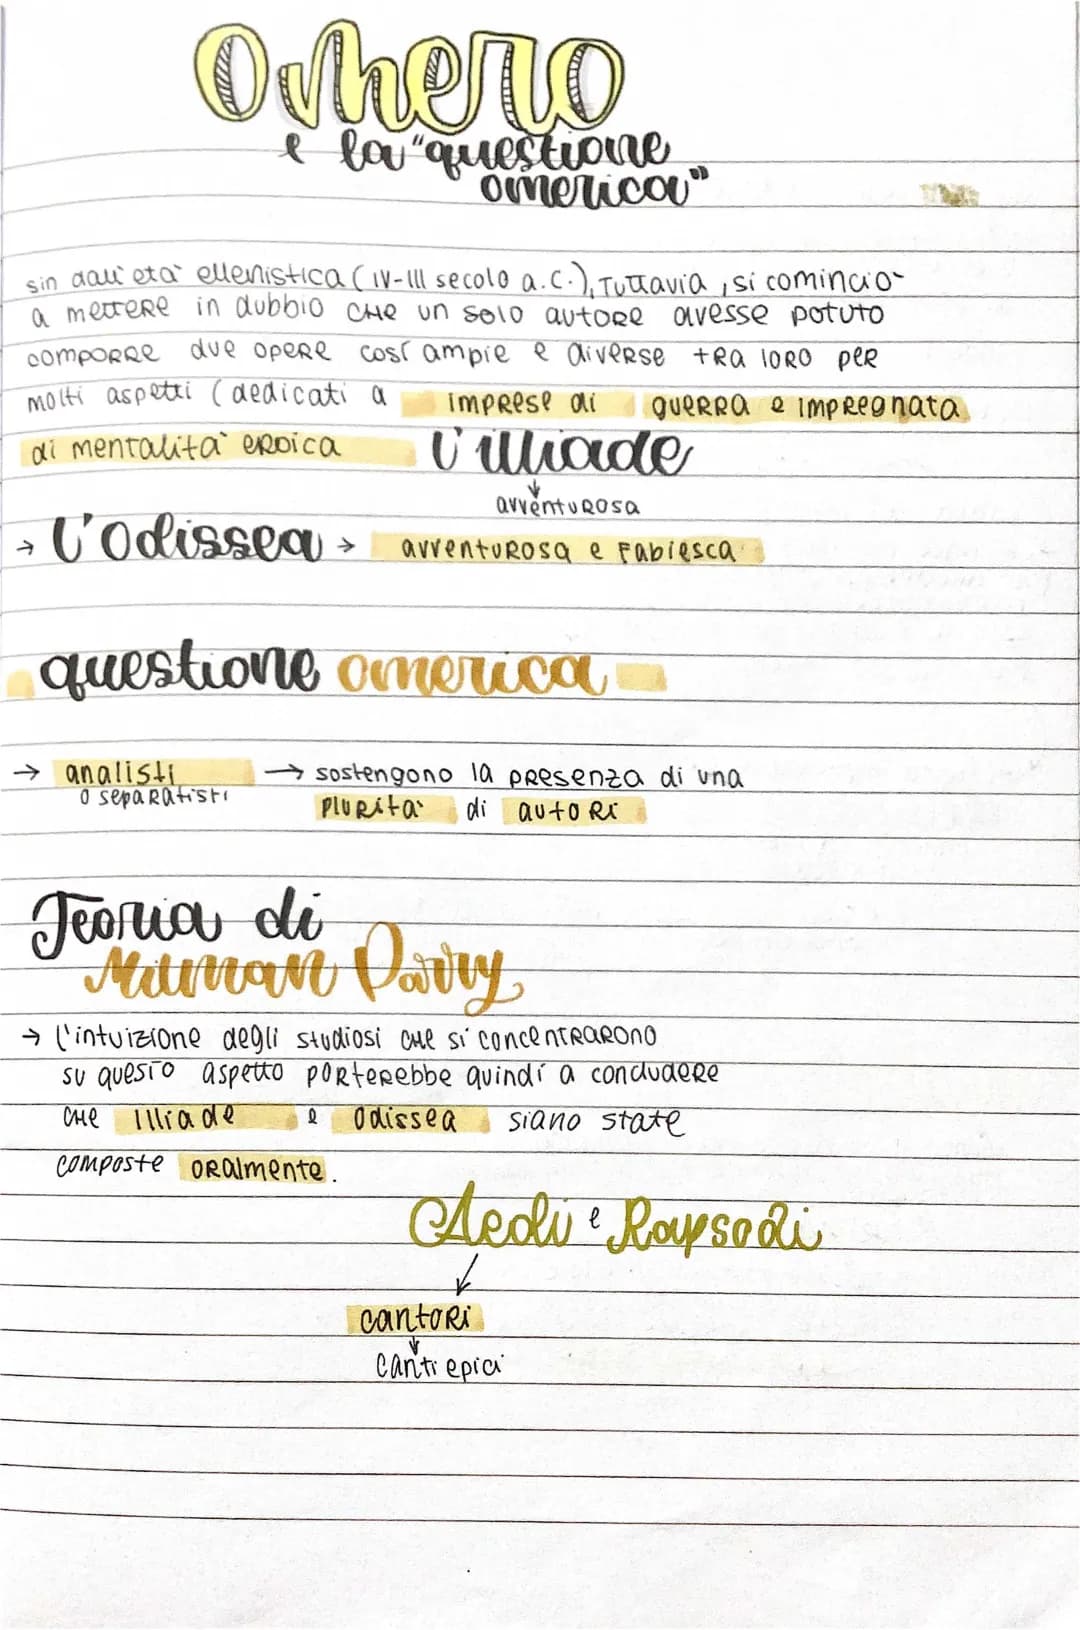 Omero
e la "questione
omerica"
sin dall'età ellenistica (IV-III secolo a.C.), Tuttavia, si cominciò
a mettere in dubbio che un solo autore avesse potuto
comporre due opere così ampie e diverse tra loro per
molti aspetti (dedicati a imprese di guerra e impregnata
di mentalità eroica L'illiade
avventurosa
→ L'Odissea → avventurosa e Fabiesca
questione omerica
→ analisti → sostengono la presenza di una
o separatisti
plurità di autori
Teoria di
Milman Parry
→ l'intuizione degli studiosi che si concentrarono
su questo aspetto porterebbe quindi a concludere
che Illiade e Odissea siano state
composte oralmente.
Aedi e Rapsodi
cantori
canti epici